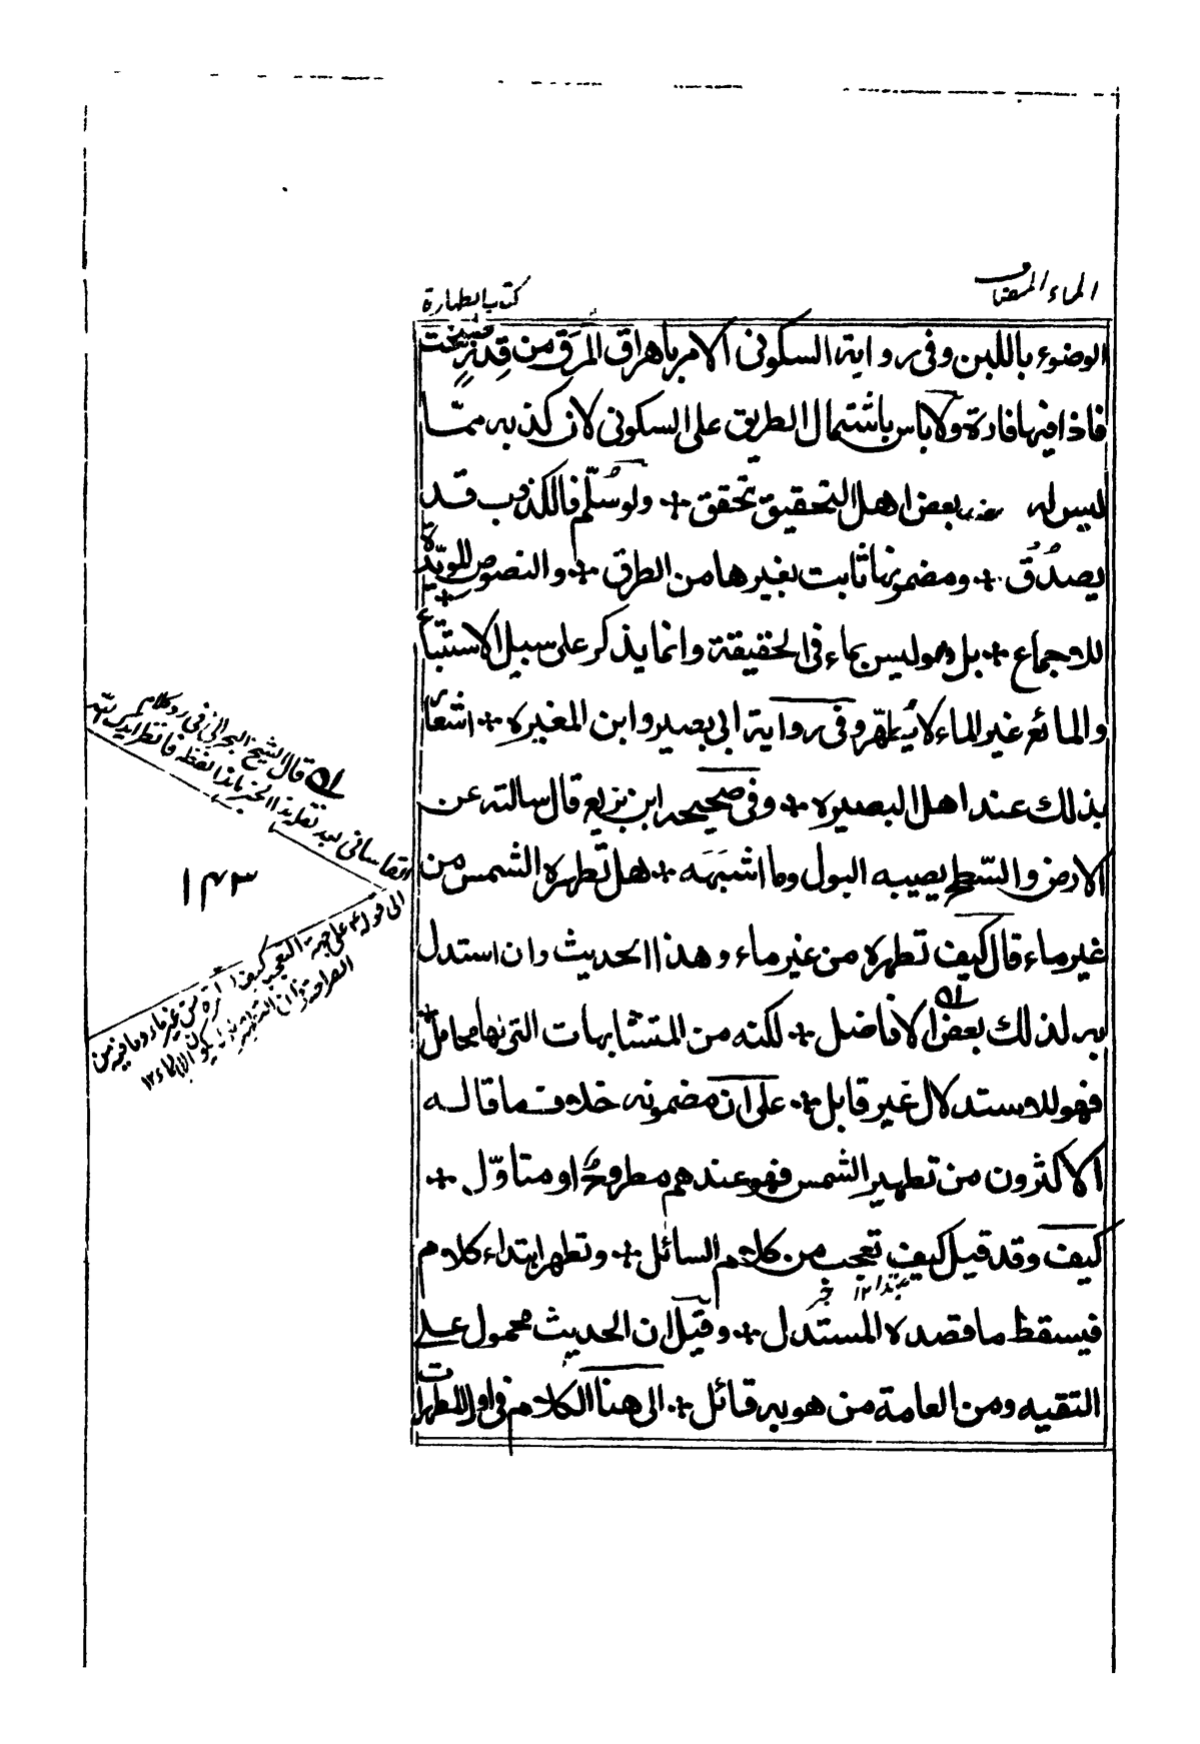 الماء المضاف
كتاب الطهارة
الوضوء باللبن وفى رواية السكونى الامر باهراق المرق من قدر طبخت
فاذا فيها فارة ولا باس باشتمال الطريق على السكونى لان كذبه ممّا
ليس له عند بعض اهل التحقيق تحقق + ولو سُلّم فالكذوب قد
يصدُق + ومضمونها ثابت بغيرها من الطرق + والنصوص المويّدة
للاجماع + بل هو ليس بماء فى الحقيقة وانما يذكر على سبيل الاستتباع
والمائع غير الماء لا يُطهّر وفى رواية ابى بصير وابن المغيره + اشعار
بذلك عند اهل البصيره + وفى صحيحه ابن بزيع قال سالته عن
الارض والسّطح يصيبه البول وما اشبَهَه + هل تطهره الشمس من
غير ماء قال كيف تطهره من غير ماء وهذا الحديث وان استدل
به لذلك بعض الافاضل + لكنه من المتشابهات التى لها محامل +
فهو للاستدلال غير قابل + على ان مضمونه خلاف ما قاله
الاكثرون من تطهير الشمس فهو عندهم مطروح او متاوّل +
كيف وقد قيل كيف تعجب من كلام السائل + وتطهر ابتداء كلام
مبتدا ١٢ خبر
فيسقط ما قصده المستدل + وقيل ان الحديث محمول على
التقيه ومن العامة من هو به قائل + الى هنا الكلام فى اول المطهرات
قال الشيخ البحرانى فى رد كلام
القاسانى بعد نقله هذا الخبر بهذا لفظه فانظر ايدك الله
١٤٣
الى قوله ع على جهة التعجب كيف تطهره من غير ماء وما فيه من
الصراحة فى ان التطهير لا يكون الا بالماء ١٢